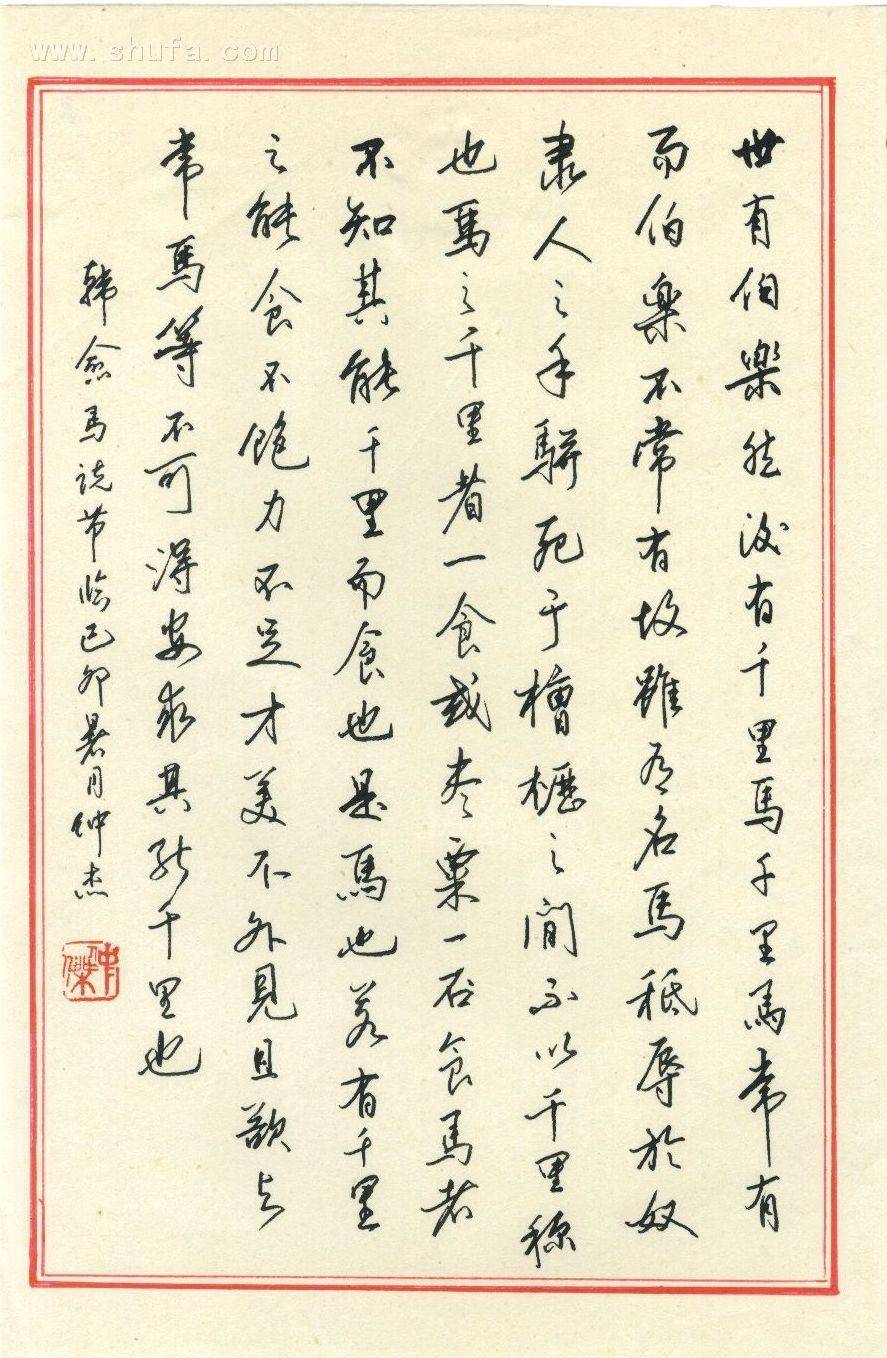 www.shufa.com
世有伯樂然後有千里馬千里馬常有
而伯樂不常有故雖有名馬秪辱於奴
隶人之手駢死于槽櫪之間不以千里称
也馬之千里者一食或尽粟一石食馬者
不知其能千里而食也是馬也若有千里
之能食不飽力不足才美不外見且欲与
常馬等不可得安求其能千里也
韩愈马说节临己卯暑月仲杰
仲傑